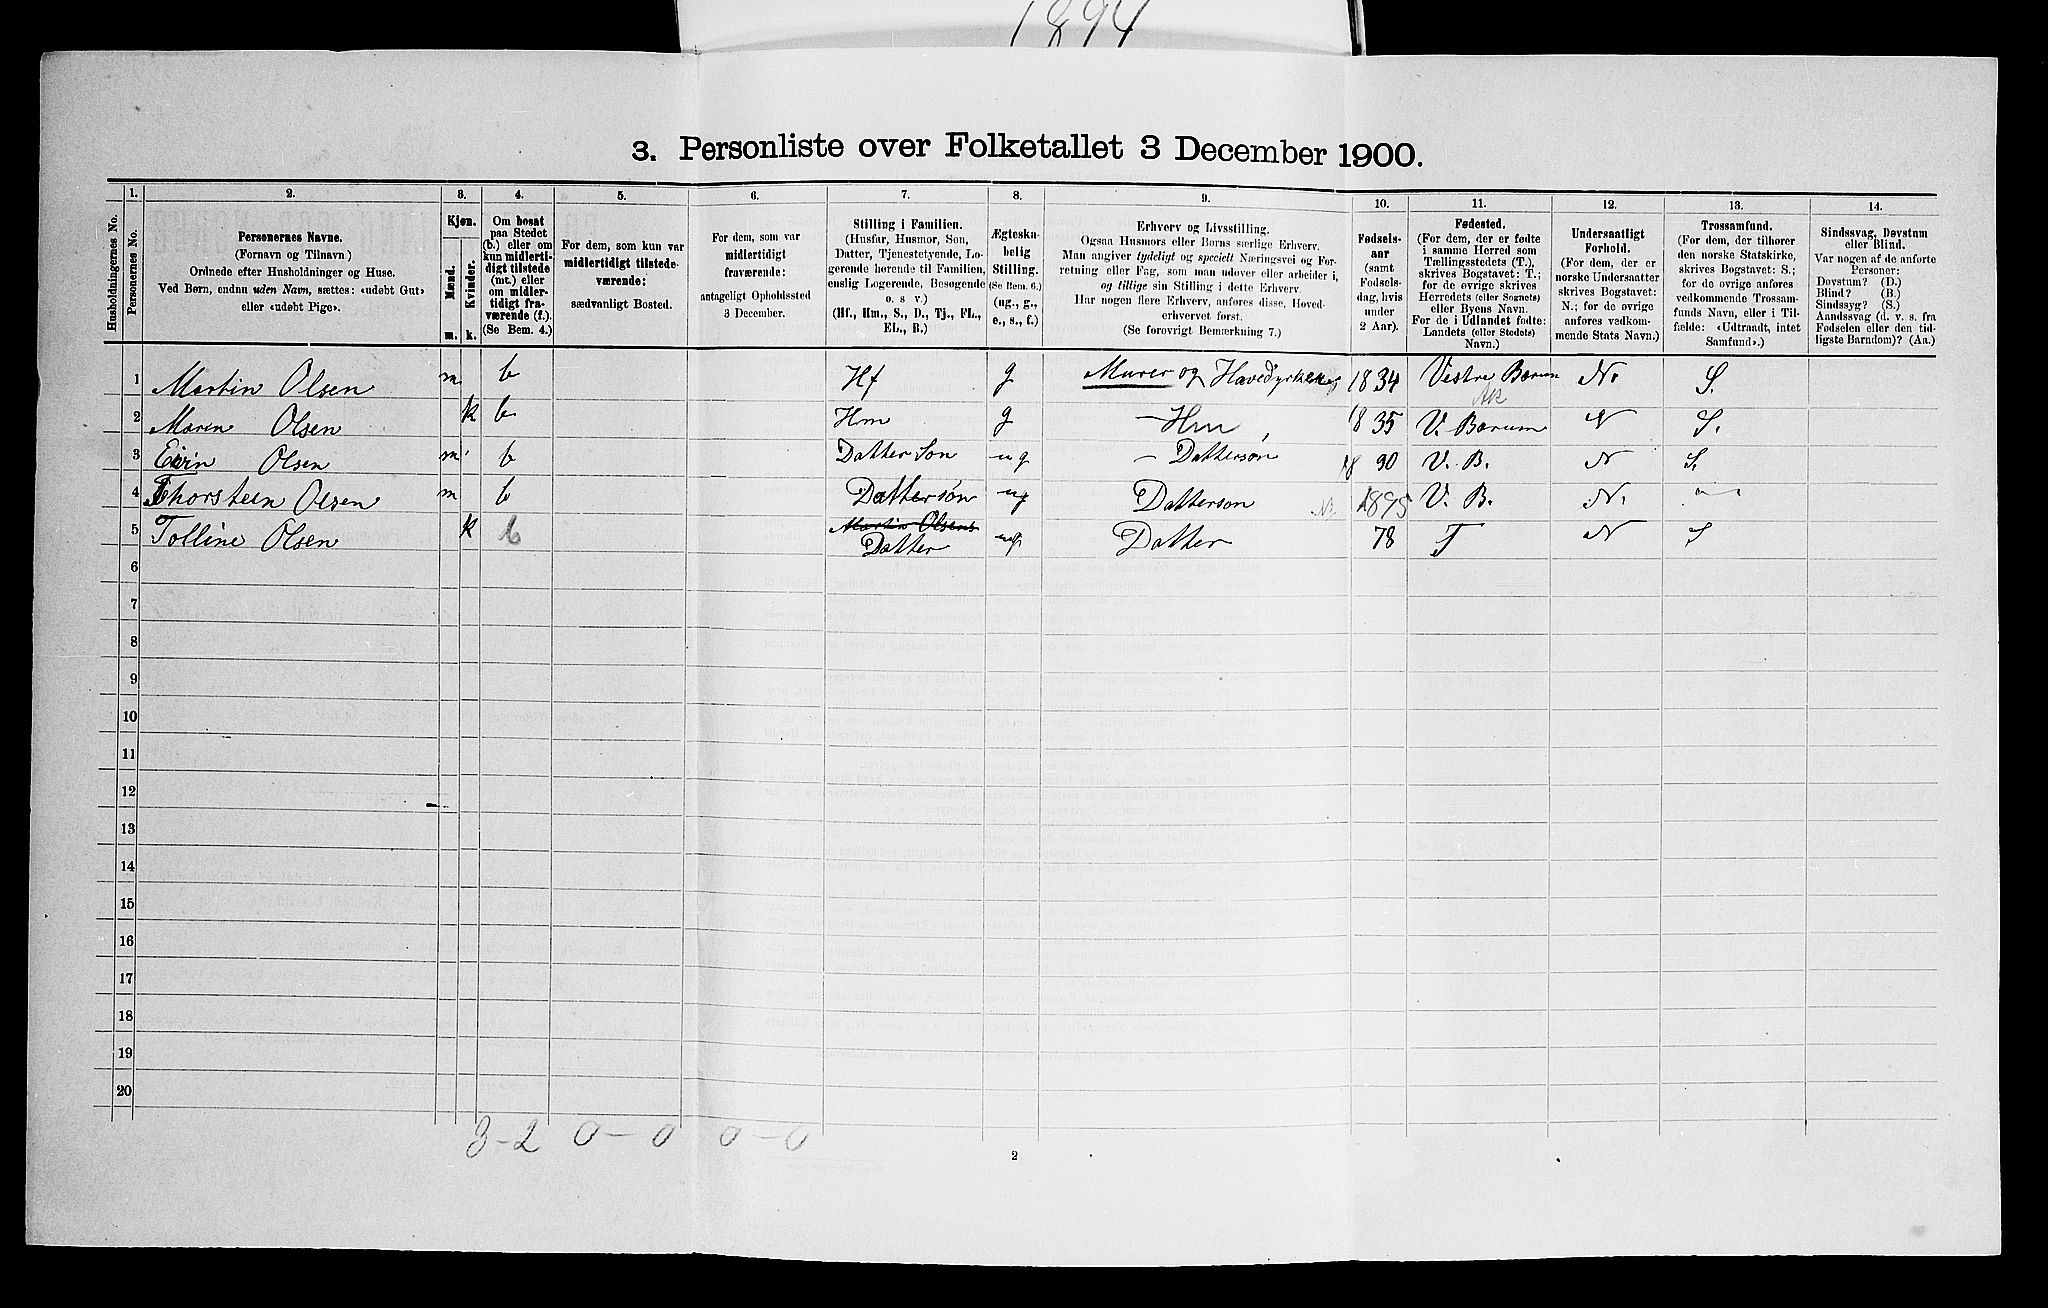 1894
3. Personliste over Folketallet 3 December 1900.
1. 2. 3. 4. 5. 6. 7. 8. 9. 10. 11. 12. 13. 14.
Husholdningernes No.
Personernes No.
Personernes Navne.
(Fornavn og Tilnavn.)
Ordnede efter Husholdninger og Huse.
Ved Børn, endnu uden Navn, sættes: «udøbt Gut»
eller «udøbt Pige».
Kjøn.
Mænd.
Kvinder.
m. k.
Om bosat
paa Stedet
(b.) eller om
kun midlerti-
digt tilstede
(mt.) eller
om midler-
tidigt fra-
værende (f.).
(Se Bem. 4.)
For dem, som kun var
midlertidigt tilstede-
værende:
sædvanligt Bosted.
For dem, som var
midlertidigt
fraværende:
antageligt Opholdssted
3 December.
Stilling i Familien.
(Husfar, Husmor, Søn,
Datter, Tjenestetyende, Lo-
gerende hørende til Familien,
enslig Logerende, Besøgende
o. s v.)
(Hf., Hm., S., D., Tj., FL.,
EL., B.)
Ægteska-
belig
Stilling.
(Se Bem. 6.)
(ug., g.,
e., s., f.)
Erhverv og Livsstilling.
Ogsaa Husmors eller Børns særlige Erhverv.
Man angiver tydeligt og specielt Næringsvei og For-
retning eller Fag, som man udøver eller arbeider i,
og tillige sin Stilling i dette Erhverv.
Har nogen flere Erhverv, anføres disse, Hoved-
erhvervet først.
(Se forøvrigt Bemærkning 7.)
Fødsels-
aar
(samt
Fødsels-
dag, hvis
under
2 Aar).
Fødested.
(For dem, der er fødte
i samme Herred som
Tællingsstedets (T.),
skrives Bogstavet: T.;
for de øvrige skrives
Herredets (eller Sognets)
eller Byens Navn.
For de i Udlandet fødte:
Landets (eller Stedets)
Navn.)
Undersaatligt
Forhold.
(For dem, der er
norske Undersaatter
skrives Bogstavet:
N.; for de øvrige
anføres vedkom-
mende Stats Navn.)
Trossamfund.
(For dem, der tilhører
den norske Statskirke,
skrives Bogstavet: S.;
for de øvrige anføres
vedkommende Trossam-
funds Navn, eller i Til-
fælde: «Udtraadt, intet
Samfund».)
Sindssvag, Døvstum
eller Blind.
Var nogen af de anførte
Personer:
Døvstum? (D.)
Blind? (B.)
Sindssyg? (S.)
Aandssvag (d. v. s. fra
Fødselen eller den tid-
ligste Barndom)? (Aa.)
1 Martin Olsen m b Hf g Murer og 1834 Vestre Bærum N. S.
Ak
2 Maren Olsen k b Hm g – Hm 1835 V. Bærum N S.
3 Olsen m b Datter Søn ug – Dattersøn 18 90 V. B. N S.
4 Thorsteen Olsen m b Dattersøn ug Datterson 1895 V. B. N. "
5 Tolline Olsen k b Martin Olsens
Datter ug Datter 78 T N S
6
7
8
9
10
11
12
13
14
15
16
17
18
19
20
3–2 0–0 0–0
2